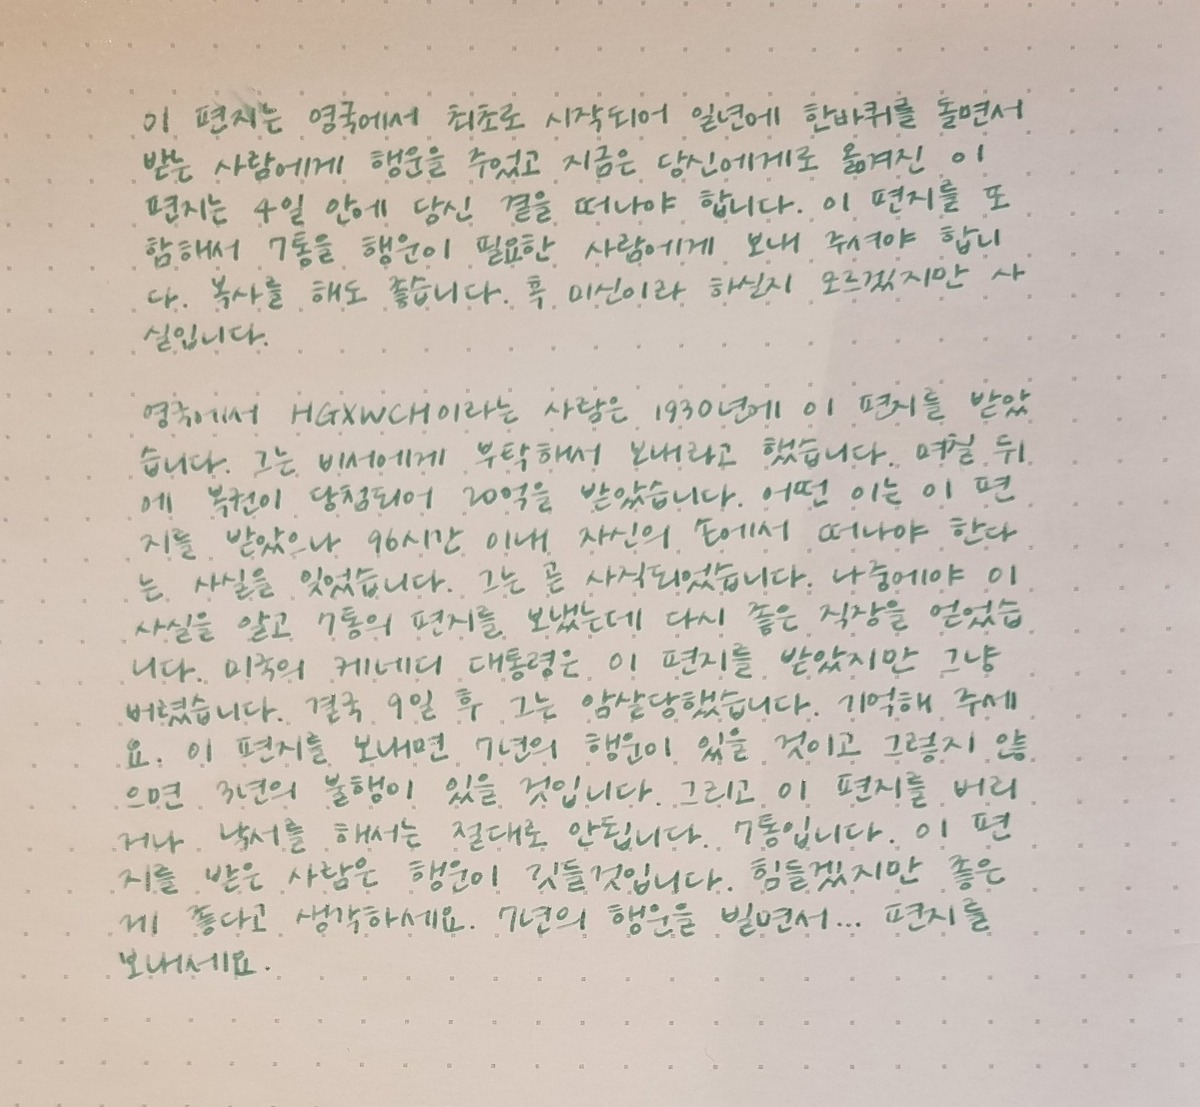 이 편지는 영국에서 최초로 시작되어 일년에 한바퀴를 돌면서
받는 사람에게 행운을 주었고 지금은 당신에게로 옮겨진 이
편지는 4일 안에 당신 곁을 떠나야 합니다. 이 편지를 포
함해서 7통을 행운이 필요한 사람에게 보내 주셔야 합니
다. 복사를 해도 좋습니다. 혹 미신이라 하실지 모르겠지만 사
실입니다.
영국에서 HGXWCH이라는 사람은 1930년에 이 편지를 받았
습니다. 그는 비서에게 부탁해서 보내라고 했습니다. 며칠 뒤
에 복권이 당첨되어 20억을 받았습니다. 어떤 이는 이 편
지를 받았으나 96시간 이내 자신의 손에서 떠나야 한다
는 사실을 잊었습니다. 그는 곧 사직되었습니다. 나중에야 이
사실을 알고 7통의 편지를 보냈는데 다시 좋은 직장을 얻었습
니다. 미국의 케네디 대통령은 이 편지를 받았지만 그냥
버렸습니다. 결국 9일 후 그는 암살당했습니다. 기억해 주세
요. 이 편지를 보내면 7년의 행운이 있을 것이고 그렇지 않
으면 3년의 불행이 있을 것입니다. 그리고 이 편지를 버리
거나 낙서를 해서는 절대로 안됩니다. 7통입니다. 이 편
지를 받은 사람은 행운이 깃들것입니다. 힘들겠지만 좋은
게 좋다고 생각하세요. 7년의 행운을 빌면서... 편지를
보내세요.